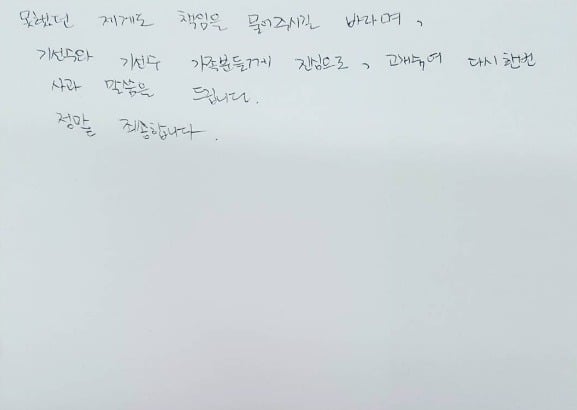 못했던 제게도 책임을 물어주시길 바라며,
기선수와 기선수 가족분들께 진심으로, 고개숙여 다시한번
사과 말씀을 드립니다.
정말 죄송합니다.